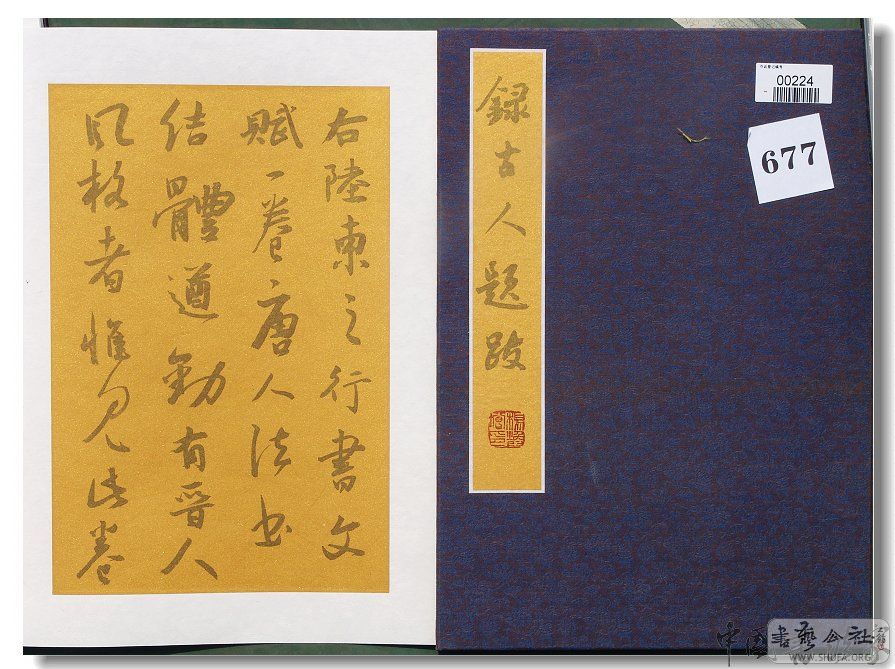 録古人題跋
00224
677
右陸柬之行書文
賦一卷唐人法書
結體遒勁有晉人
風格者惟見此卷
中国書艺公社
WWW.SHUFA.ORG